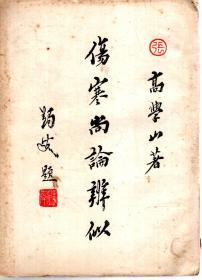 張
高學山著
傷寒尚論辨似
題